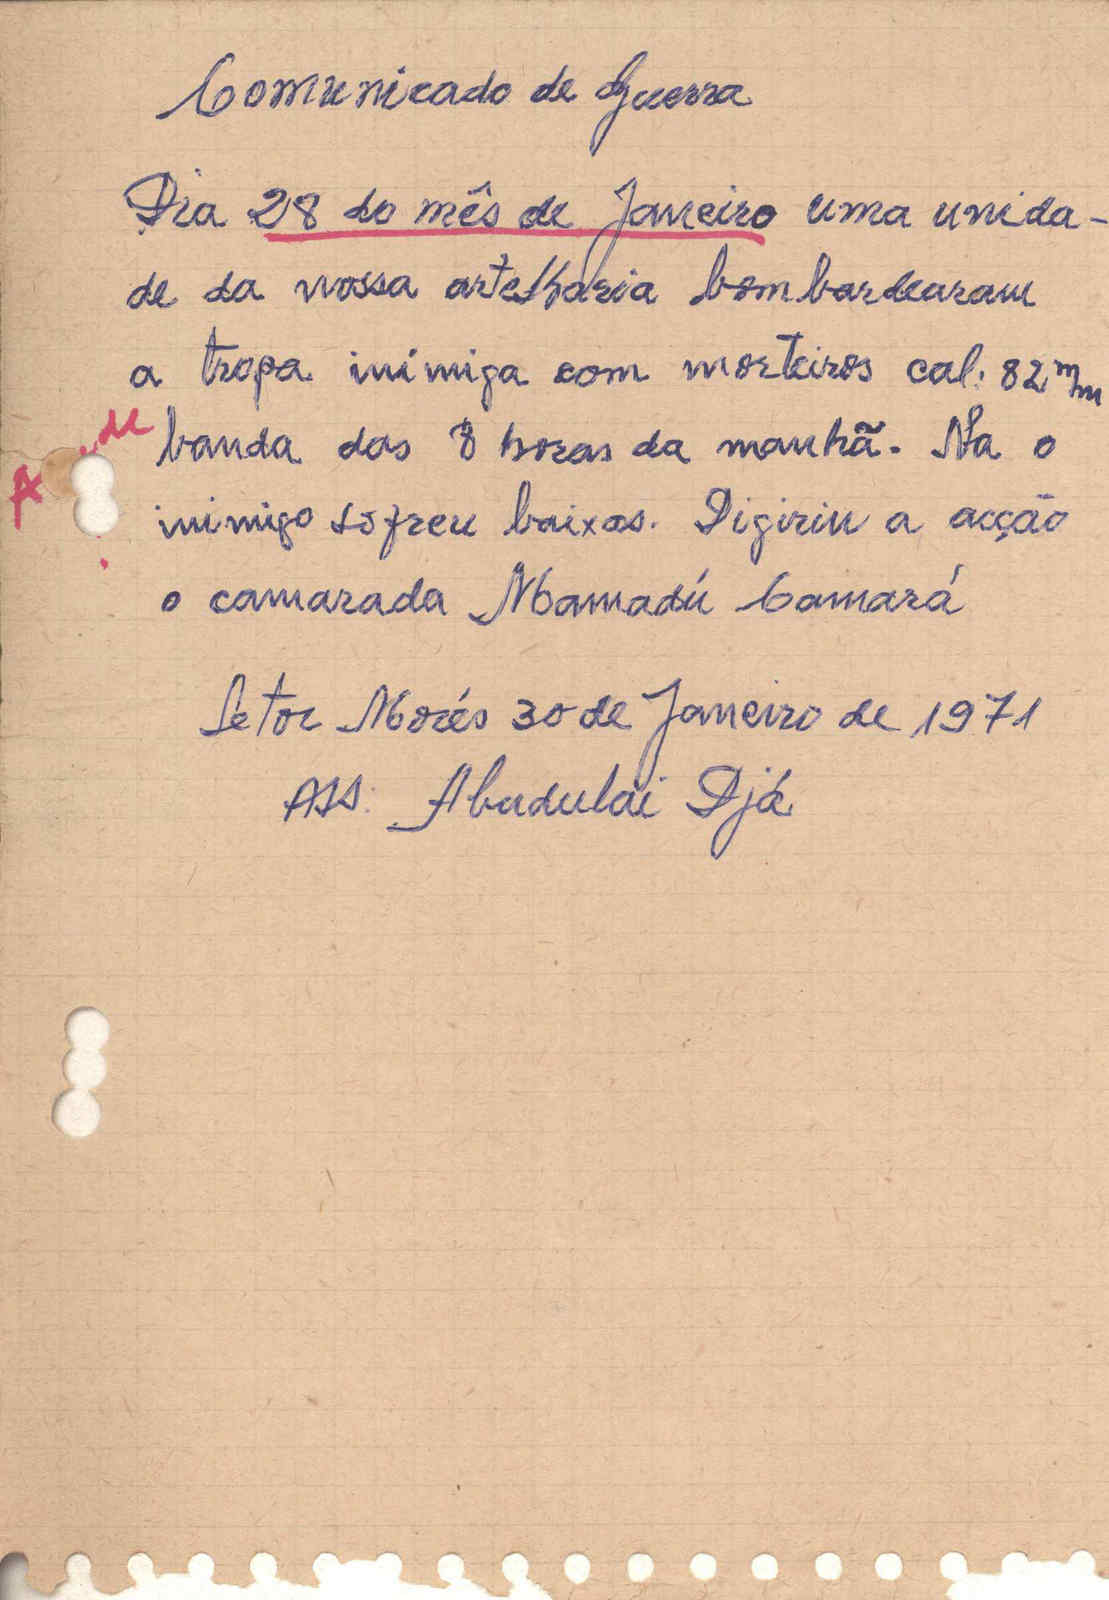 Comunicado de Guerra
Dia 28 do mês de Janeiro uma unida-
de da nossa artelharia bombardearam
a tropa inimiga com morteiros cal. 82 m/m
banda das 8 horas da manhã. Na o
inimigo sofreu baixas. Digiriu a acção
o camarada Mamadú Camará
Setor Morés 30 de Janeiro de 1971
Ass: Abudulai Djá